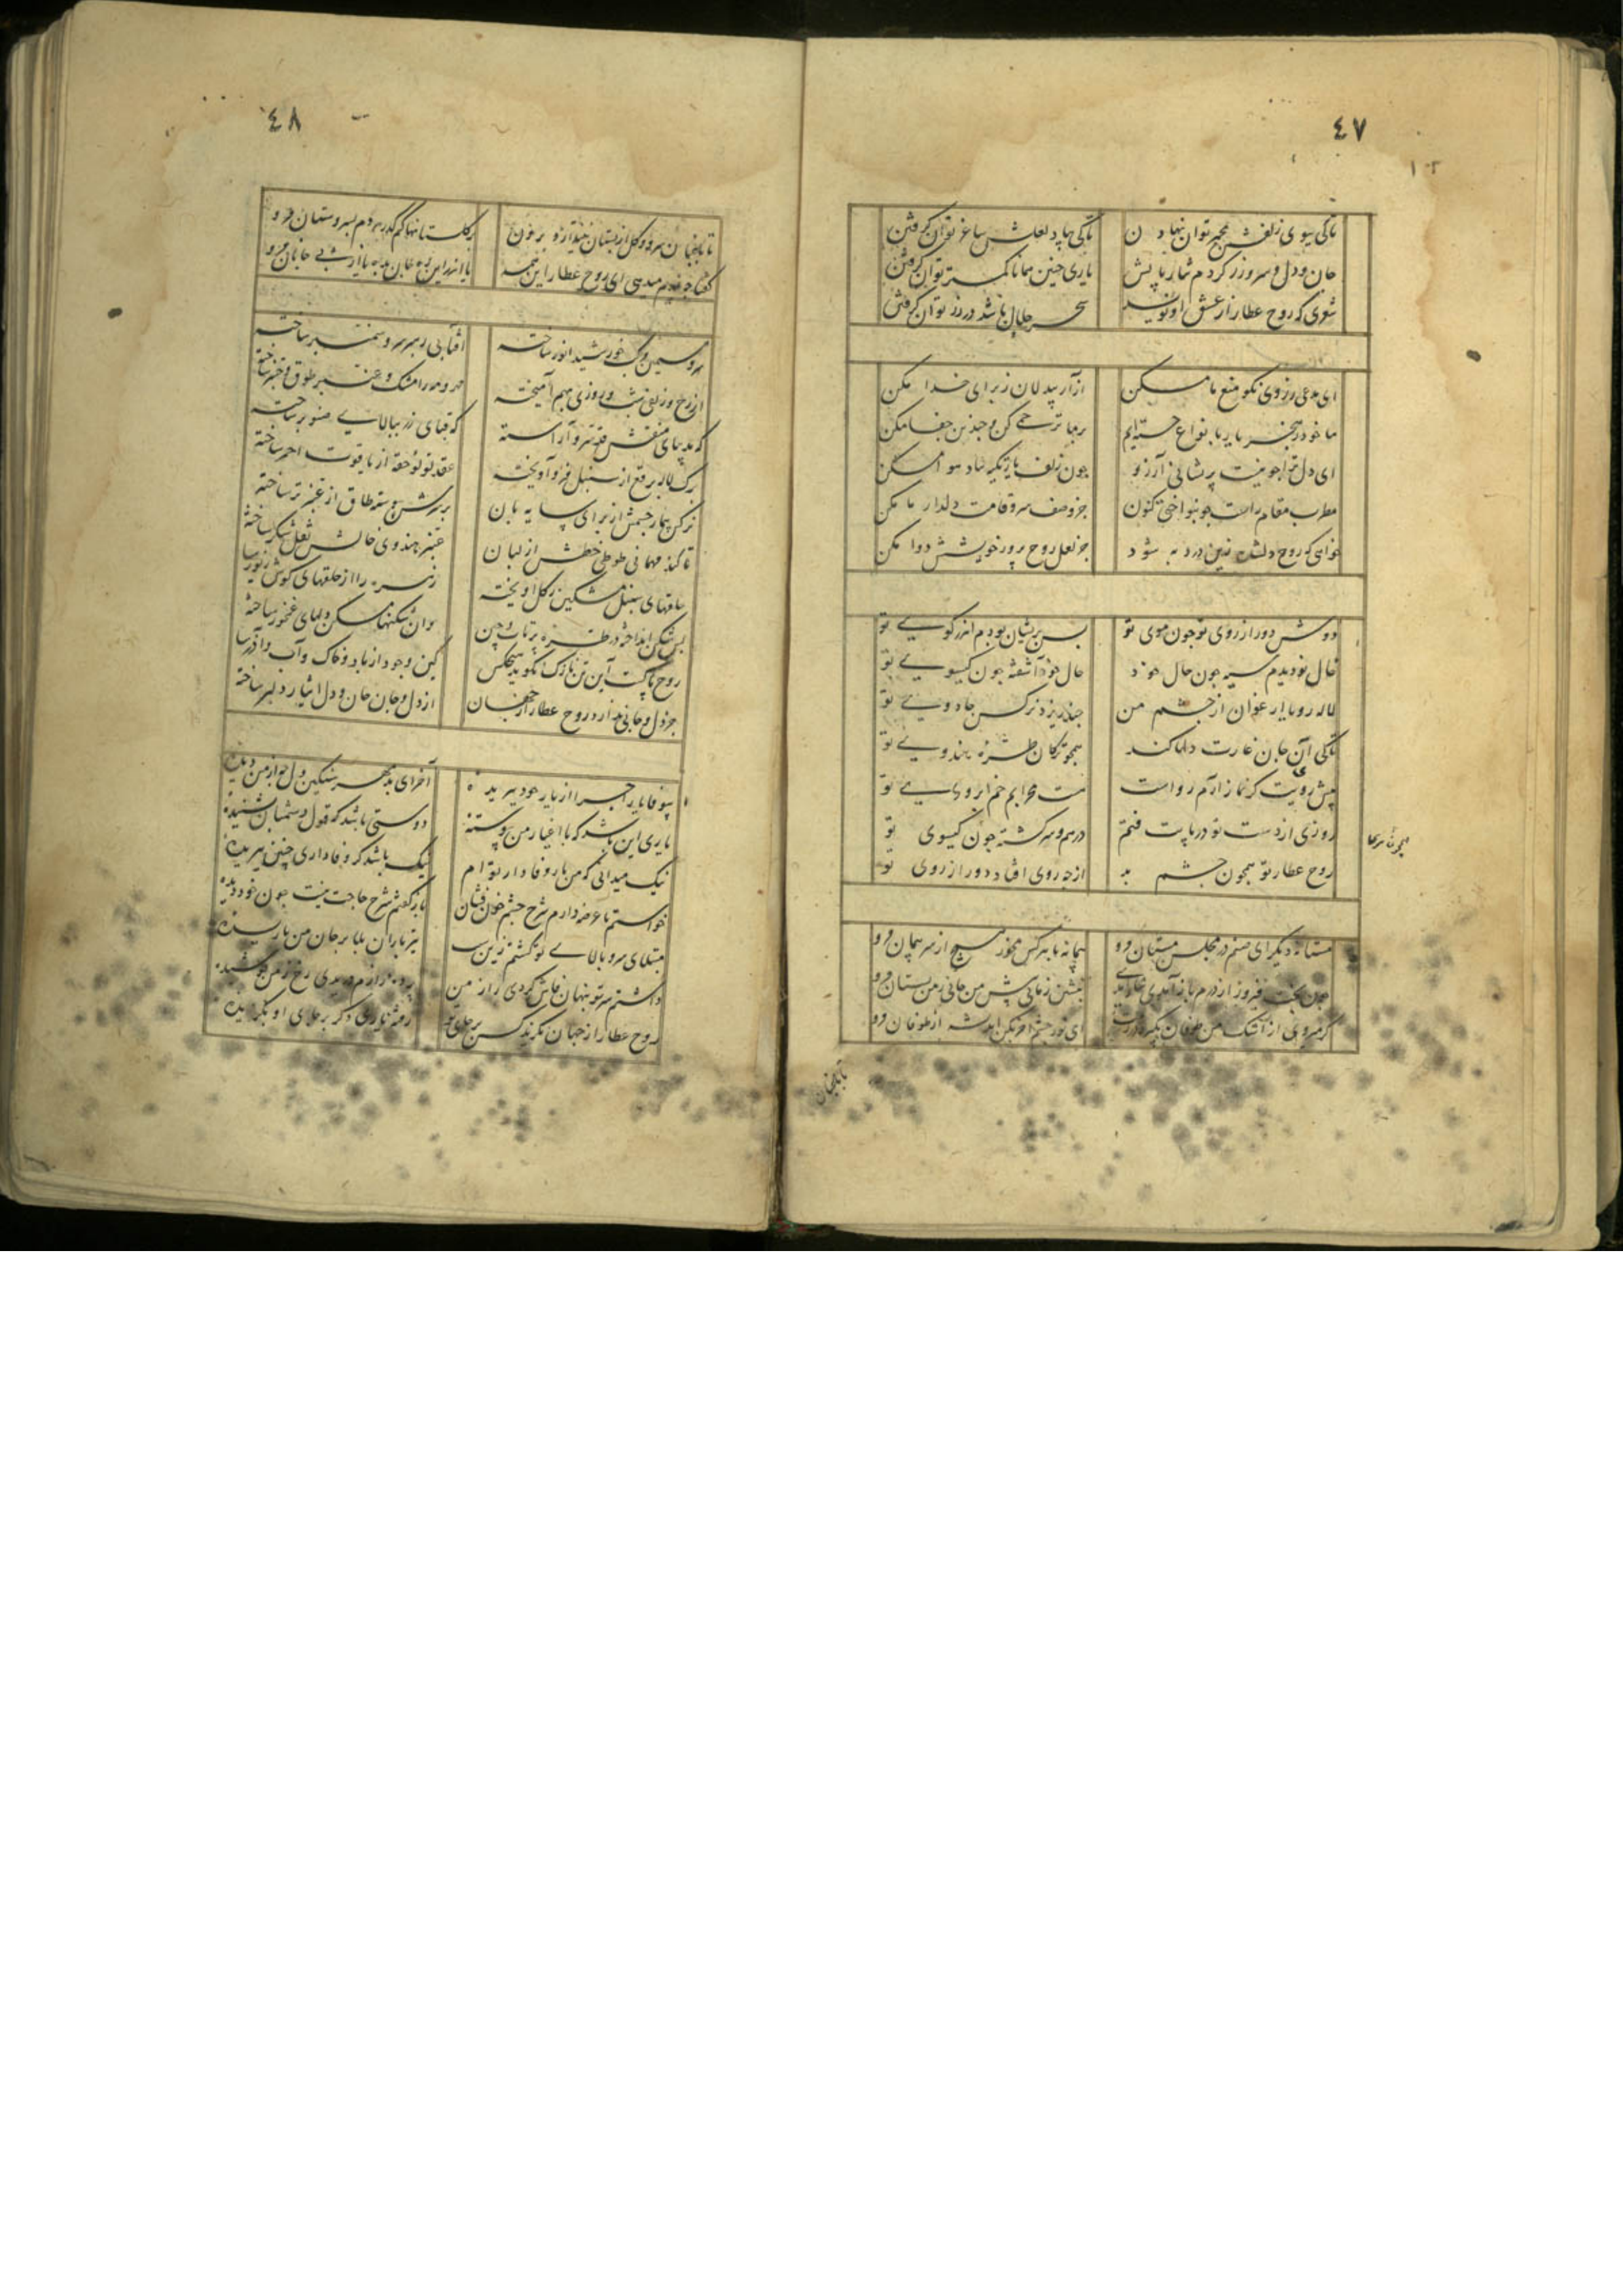 ٤٧
تاکی ببوی زلفش مجمر توان نهادن
تاکی بیاد لعلش ساغر توان گرفتن
جان و دل و سر و زر کردم نثار پایش
یاری چنین همانا کمتر توان گرفتن
شعری که روح عطار از عشق او نویسد
سحر حلال باشد در زر توان گرفتن
ای مدعی ز روی نکو منع ما مکن
آزار بیدلان ز برای خدا مکن
ما خود ز هجر یار بانواع خسته‌ایم
بر ما ترحمی کن و چندین جفا مکن
ای دل ترا چو نیست پریشانی آرزو
چون زلف یار تکیه بباد هوا مکن
مطرب مقام راست چو بنواختی کنون
جز وصف سرو قامت دلدار ما مکن
خواهی که روح دلشده زین درد به شود
جز لعل روح پرور خویشش دوا مکن
دوش دور از روی تو چون موی تو
بس پریشان بودم اندر کوی تو
خال تو دیدم سیه چون حال خود
حال خود آشفته چون گیسوی تو
لاله رویا ارغوان از چشم من
چند ریزد نرگس جادوی تو
تاکی آن جان غارت دلها کند
همچو ترکان طره هندوی تو
پیش رویت گر نماز آرم رواست
هست محرابم خم ابروی تو
روزی از دست تو در پایت فتم
درهم و سرگشته چون گیسوی تو
روح عطار تو همچون چشم بد
از چه روی افتاد دور از روی تو
مستانه دیگر ای صنم در مجلس مستان مرو
پیمانه با هر کس مخور مسیح از سر پیمان مرو
چون بخت فیروز از درم باز آمدی
بنشین زمانی پیش من جانی ز من بستان مرو
گر میروی از اشک من طوفان بگیرد
ای نور چشم آخر مکن اندیشه از طوفان مرو
٤٨
تا باغبان سرو و گل از بستان نیندازد برون
در گلستانها کم گذر هر دم بسروستان مرو
گفتا چه غم میرسی ای روح عطار این همه
سرو سیمین وبک خورشید انور ساخته
آفتابی بر سر سرو سمنبر ساخته
از رخ و زلفش شب و روزی بهم آمیخته
که بدیبای منقش قد سرو آراسته
که قبای زر ببالای صنوبر ساخته
برگ لاله برقع از سنبل فرو آویخته
عقد لولو حقه از یاقوت احمر ساخته
نرگس بیمار چشمش از برای سایه بان
بر سرش پیوسته طاق از عنبر تر ساخته
تا کند مهمانی طوطی خطش از لبان
عنبر هندوی خالش نقل شکر ساخته
ساقهای سنبل مشکین ز گل آویخته
بس شکن انداخته در طره پرتاب و چین
وان شکنها مسکن دلهای غمخور ساخته
روح پاکست این تن نازک نگوید هیچکس
کین وجود از باد و خاک و آب و آذر ساخته
جز دل و جانی ندارد روح عطار از جهان
از دل و جان جان و دل ایثار دلبر ساخته
بیوفا یارا چرا از یار خود ببریده
آخر ای بدمهر سنگین دل چه از من دیده
یاری این باشد که با اغیار من پیوسته
دوستی باشد که قول دشمنان بشنیده
نیک میدانی که من یار وفادار توام
نیک باشد کز وفاداری چنین ببریده
خواستم تا عرضه دارم شرح چشم خون فشان
باز گفتم شرح حاجت نیست چون خود دیده
مبتلای سرو بالای تو گشتم زین سبب
تیر باران بلا بر جان من باریده
داشتم سر تو پنهان فاش کردی راز من
روح عطار از جهان نگزید کس بر جای تو
رفته یاری دگر بر جای او بگزیده